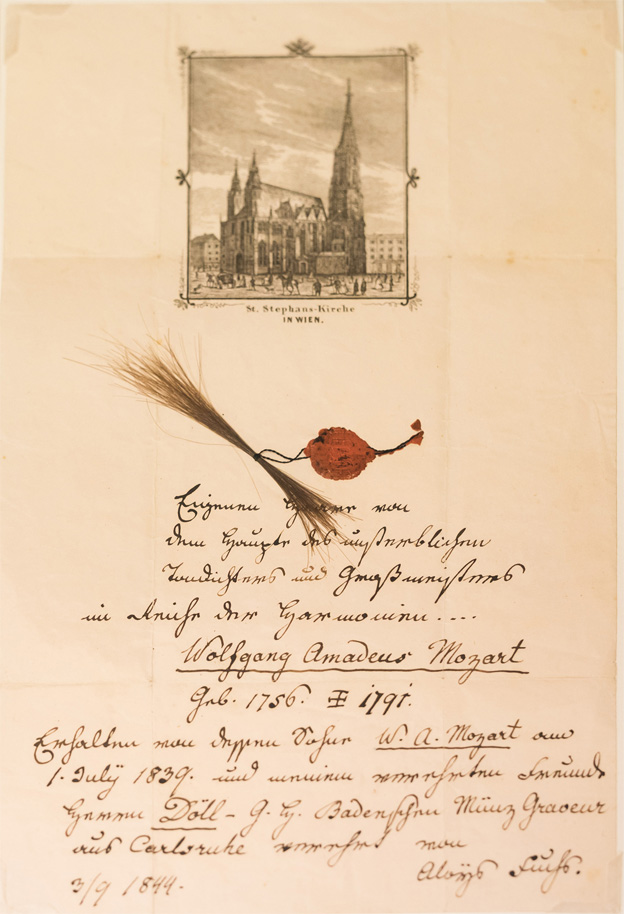 St. Stephans-Kirche
IN WIEN.
Eigenen Haare von
dem Haupte des unsterblichen
Tondichters und Großmeisters
im Reiche der Harmonien....
Wolfgang Amadeus Mozart
Geb. 1756. 1791.
Erhalten von dessen Sohne W. A. Mozart am
1. July 1839. und meinem verehrten Freunde
Herrn Döll - G. H. Badenschen Münz Graveur
aus Carlsruhe verehrt von
3/9 1844. Aloys Fuchs.